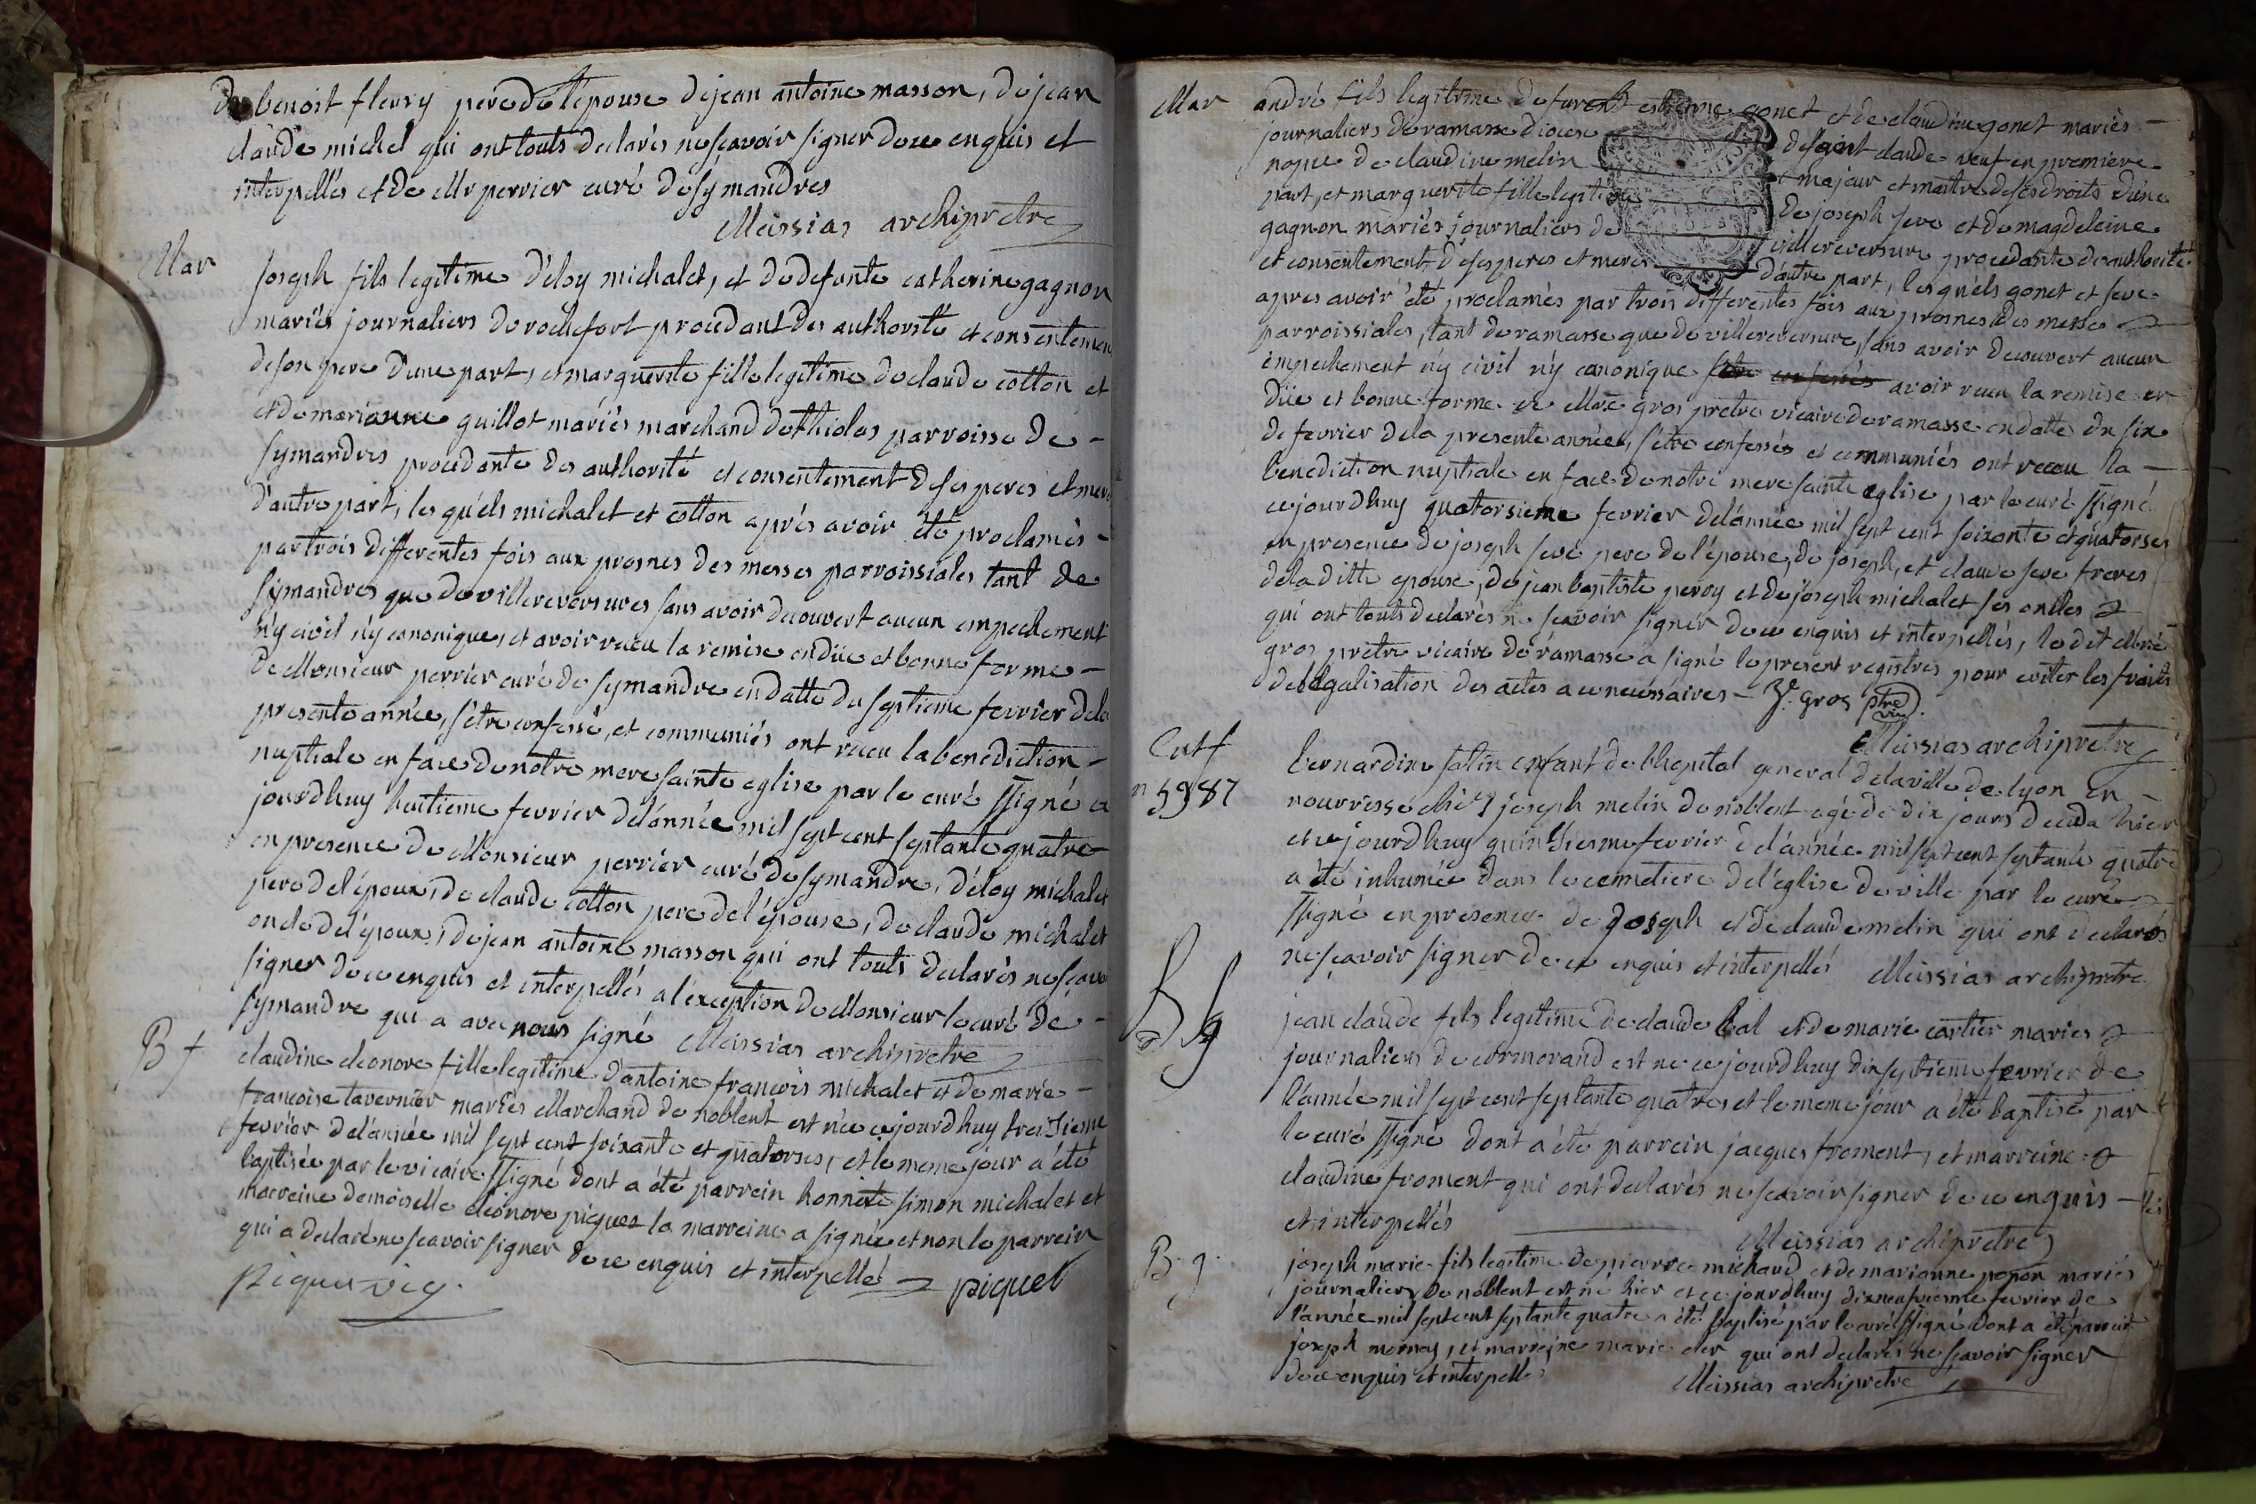 de benoit fleury pere de l'epouse de jean antoine masson, de jean
claude michel qui ont touts declarés ne scavoir signer de ce enquis et
interpellés et de Mr perrier curé de symandres
Meissias archiprêtre
Mar
joseph fils legitime d'eloy michalet, et de defunte catherine gagnon
mariés journaliers de rochefort procedant des authorité et consentement
de son pere d'une part, et marguerite fille legitime de claude cotton et
et de marianne guillot mariés marchand de thioles parroisse de -
symandres procedante des authorité et consentement de ses peres et meres
d'autre part, les quels michalet et cotton aprés avoir été proclamés -
par trois differentes fois aux prosnes des messes parroissiales tant de
symandres que de villereversures sans avoir decouvert aucun empechement
n'y civil n'y canonique, et avoir receu la remise en düe et bonne forme -
de Monsieur perrier curé de symandre en datte du septieme fevrier de la
presente année, s'être confessé, et communiés ont receu la benediction -
nuptiale en face de notre mere sainte eglise par le curé ssigné ce
jourdhuy huitieme fevrier de l'année mil sept cent septante quatre
en presence de Monsieur perrier curé de symandre, d'éloy michalet
pere de l'époux, de claude cotton pere de l'épouse, de claude michalet
oncle de l'époux, de jean antoine masson qui ont touts declarés ne scavoir
signer de ce enquis et interpellés a l'exception de Monsieur le curé de -
symandre qui a avec nous signé Meissias archiprêtre
B f
claudine eleonore fille legitime d'antoine françois michalet et de marie -
françoise tavernier mariés Marchand de noblent est née ce jourdhuy treizieme
fevrier de l'année mil sept cent soixante et quatorses, et le meme jour a été
baptisée par le vicaire ssigné dont a été parrein honnête simon michalet et
marreine demoiselle eléonore piquet la marreine a signée et non le parrein
qui a declaré ne scavoir signer de ce enquis et interpellé piquet
piquet vic.
Mar
andré fils legitime de furent estienne gonet et de claudine gonet mariés -
journaliers de ramasse diocese de saint claude veuf en premiere -
nopce de claudine melin majeur et maitre de ses droits d'une
part, et marguerite fille legitime de joseph seve et de magdeleine
gagnon mariés journaliers de villereversure procedante des authorité
et consentement de ses peres et meres d'autre part, les quels gonet et seve
apres avoir été proclamés par trois differentes fois aux prosnes des messes
parroissiales, tant de ramasse que de villereversure, sans avoir decouvert aucun
empechement n'y civil n'y canonique avoir receu la remise en
düe et bonne forme de Mre gros prêtre vicaire de ramasse en datte du six
de fevrier de la presente année, s'être confessés et communiés ont receu la -
benediction nuptiale en face de notre mere sainte eglise par le curé ssigné
ce jourdhuy quatorsieme fevrier de l'année mil sept cent soixante et quatorses
en presence de joseph seve pere de l'épouse, de joseph, et claude seve freres
de la ditte epouse, de jean baptiste peroy et de joseph michalet ses oncles
qui ont touts declarés ne scavoir signer de ce enquis et interpellés, le dit Mre
gros prêtre vicaire de ramasse a signé le present registres pour eviter les frais
de legalisation des actes a ce necessaires - gros ptre vic.
Meissias archiprêtre
Ent f
n 5987
bernardine satin enfant de l'hopital general de la ville de lyon en -
nourrisse chés joseph melin de noblent agé de dix jours decedà hier
et ce jourdhuy quinzieme fevrier de l'année mil sept cent septante quatre
a été inhumée dans le cemetiere de l'église de ville par le curé
ssigné en presence de joseph et de claude melin qui ont declarés
ne scavoir signer de ce enquis et interpellés Meissias archiprêtre
B g
jean claude fils legitime de claude bal et de marie cartier mariés
journaliers de cormorand est né ce jourdhuy dix septieme fevrier de
l'année mil sept cent septante quatre, et le meme jour a été baptisé par
le curé ssigné dont a été parrein jacques froment, et marreine
claudine froment qui ont declarés ne scavoir signer de ce enquis -
et interpellés
Meissias archiprêtre
B. g.
joseph marie fils legitime de pierre michaud et de marianne ponon mariés
journaliers de noblent est né hier et ce jourdhuy dix neufvieme fevrier de
l'année mil sept cent septante quatre a été baptisé par le curé ssigné dont a été parrein
joseph mornay, et marreine marie qui ont declarés ne scavoir signer
de ce enquis et interpellés
Meissias archiprêtre